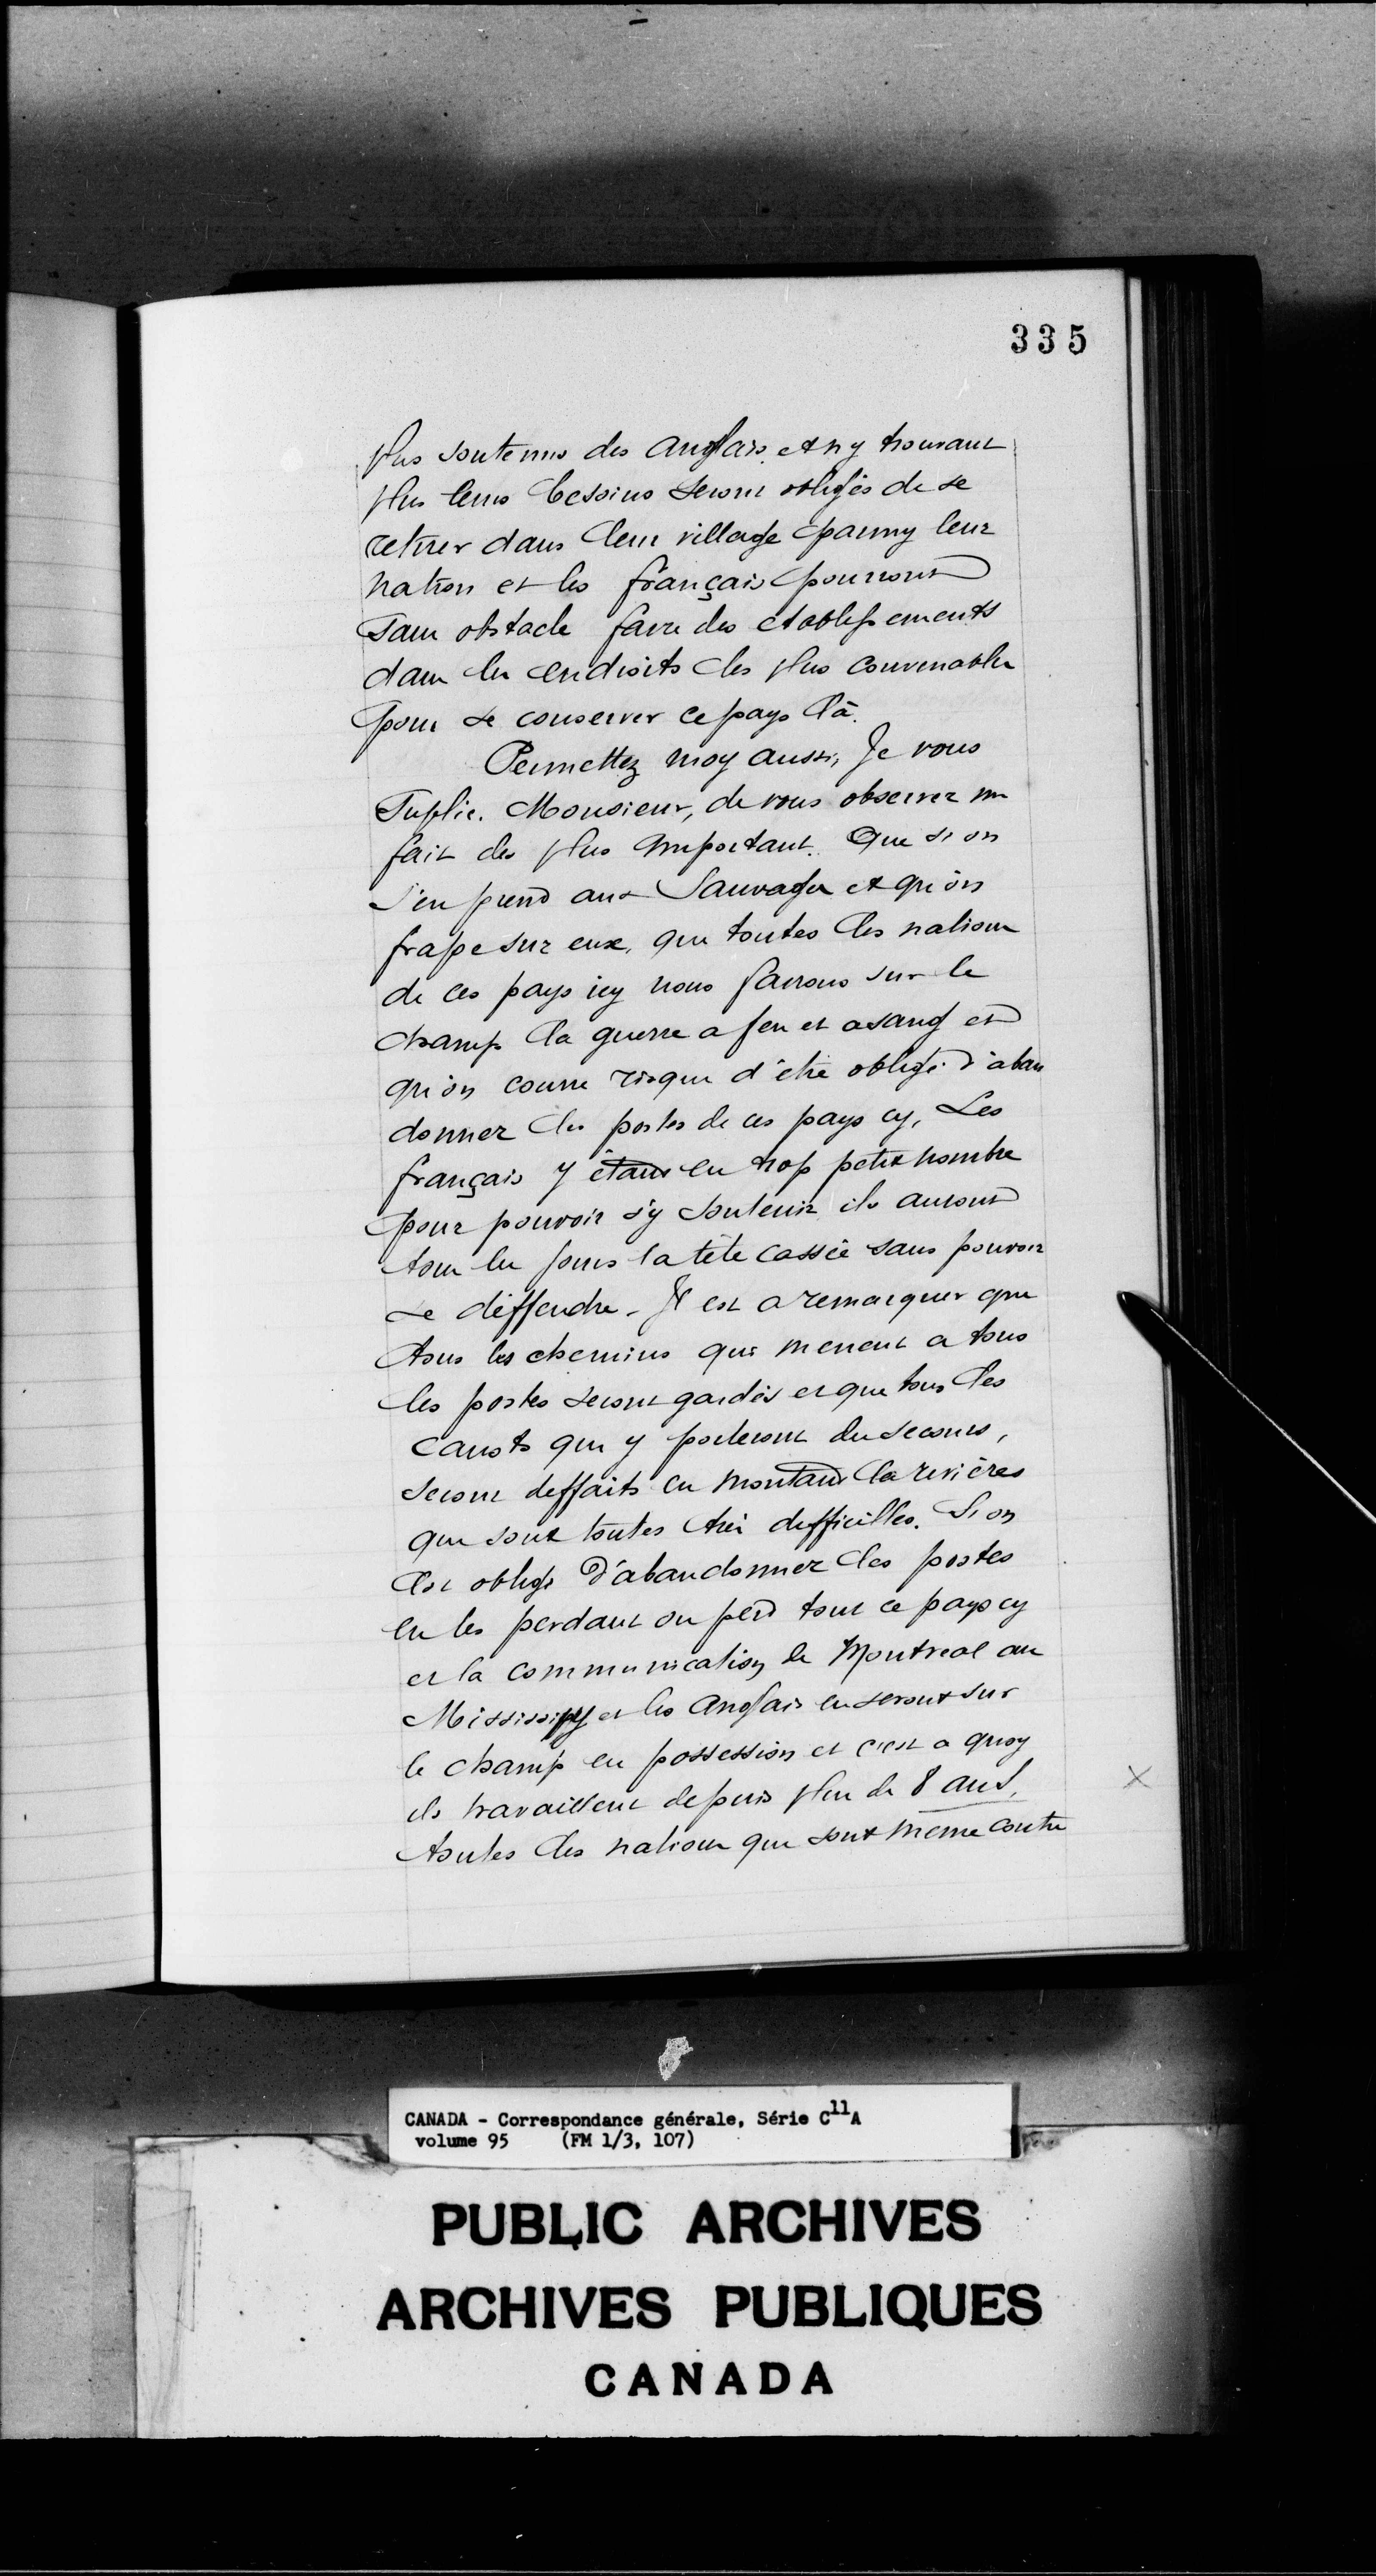 335
plus soutenus des anglais, et n'y trouvant
plus leurs besoins seront obligés de se
retirer dans leur village parmy leur
nation et les français pourront
sans obstacle faire des etablissements
dans les endroits les plus convenables
pour se conserver ce pays là.
Permettez moy aussi, Je vous
suplie. Monsieur, de vous observer un
fait des plus important. Que si on
s'en prend aux Sauvages et qu'on
frape sur eux, que toutes les nations
de ces pays icy nous fairons sur le
champ la guerre a feu et a sang et
qu'on courre risque d'être obligé d'aban
donner les postes de ces pays cy, Les
français y étant en trop petit nombre
pour pouvoir s'y soutenir, ils auront
tous les jours la tête cassée sans pouvoir
se déffendre - Il est a remarquer que
tous les chemins qui menent a tous
les postes seront gardés et que tous les
canots qui y porteront du secours,
seront deffaits en montant la rivières
qui sont toutes très difficilles. Si on
est obligé d'abandonner les postes
en les perdant on perd tout ce pays cy
et la communication de Montreal au
Mississipy et les Anglais en seront sur
le champ en possession et c'est a quoy
ils travaillent depuis plus de 8 ans.
toutes les nations qui sont même contre
CANADA - Correspondance générale, Série C11A
volume 95 (FM 1/3, 107)
PUBLIC ARCHIVES
ARCHIVES PUBLIQUES
CANADA